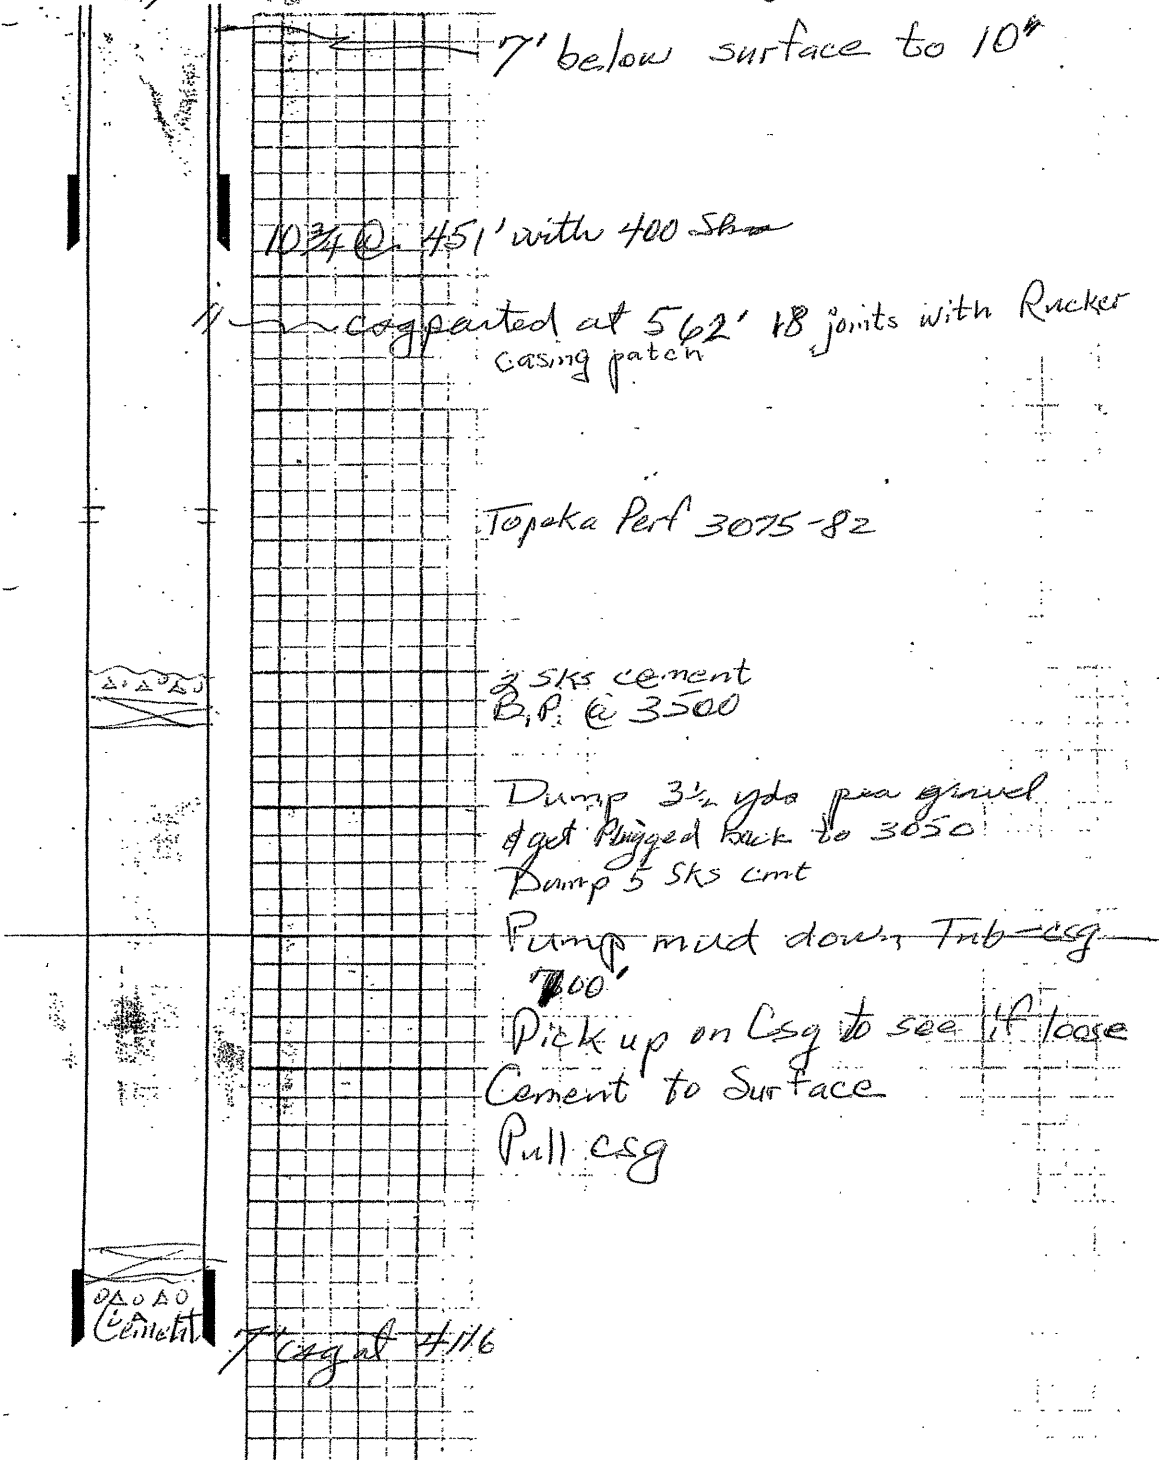 7' below surface to 10"
10 3/4 @ 451' with 400 Sks
csg parted at 562' 18 joints with Rucker
casing patch
Topeka Perf 3075-82
2 sks cement
B.P. @ 3500
Dump 3 1/2 yds pea gravel
& get Plugged back to 3050'
Dump 5 Sks cmt
Pump mud down Tub-csg
700'
Pick up on Csg to see if loose
Cement to Surface
Pull csg
Cement
7" csg at 4116